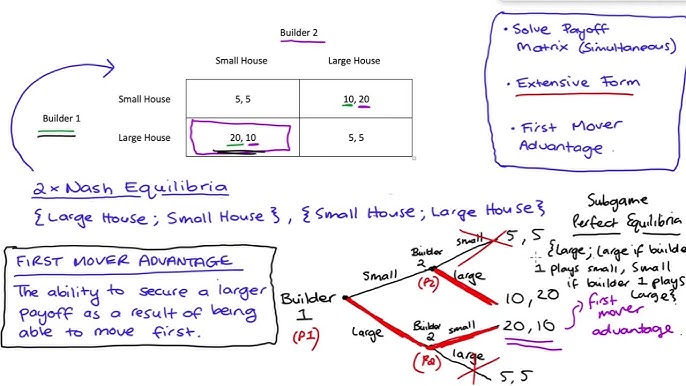 Builder 2
Small House Large House
Builder 1
Small House 5, 5 10, 20
Large House 20, 10 5, 5
• Solve Payoff
Matrix (Simultaneous)
• Extensive Form
• First Mover
Advantage
2 x Nash Equilibria
{Large House; Small House}, {Small House; Large House}
FIRST MOVER ADVANTAGE
The ability to secure a larger
payoff as a result of being
able to move first.
Builder
1
(P1)
Small
Large
Builder
2
(P2)
small
large
5, 5
10, 20
Builder
2
(P2)
small
large
20, 10
5, 5
Subgame
Perfect Equilibria
{Large; Large if builder
1 plays small, Small
if builder 1 plays
Large}
first
mover
advantage.